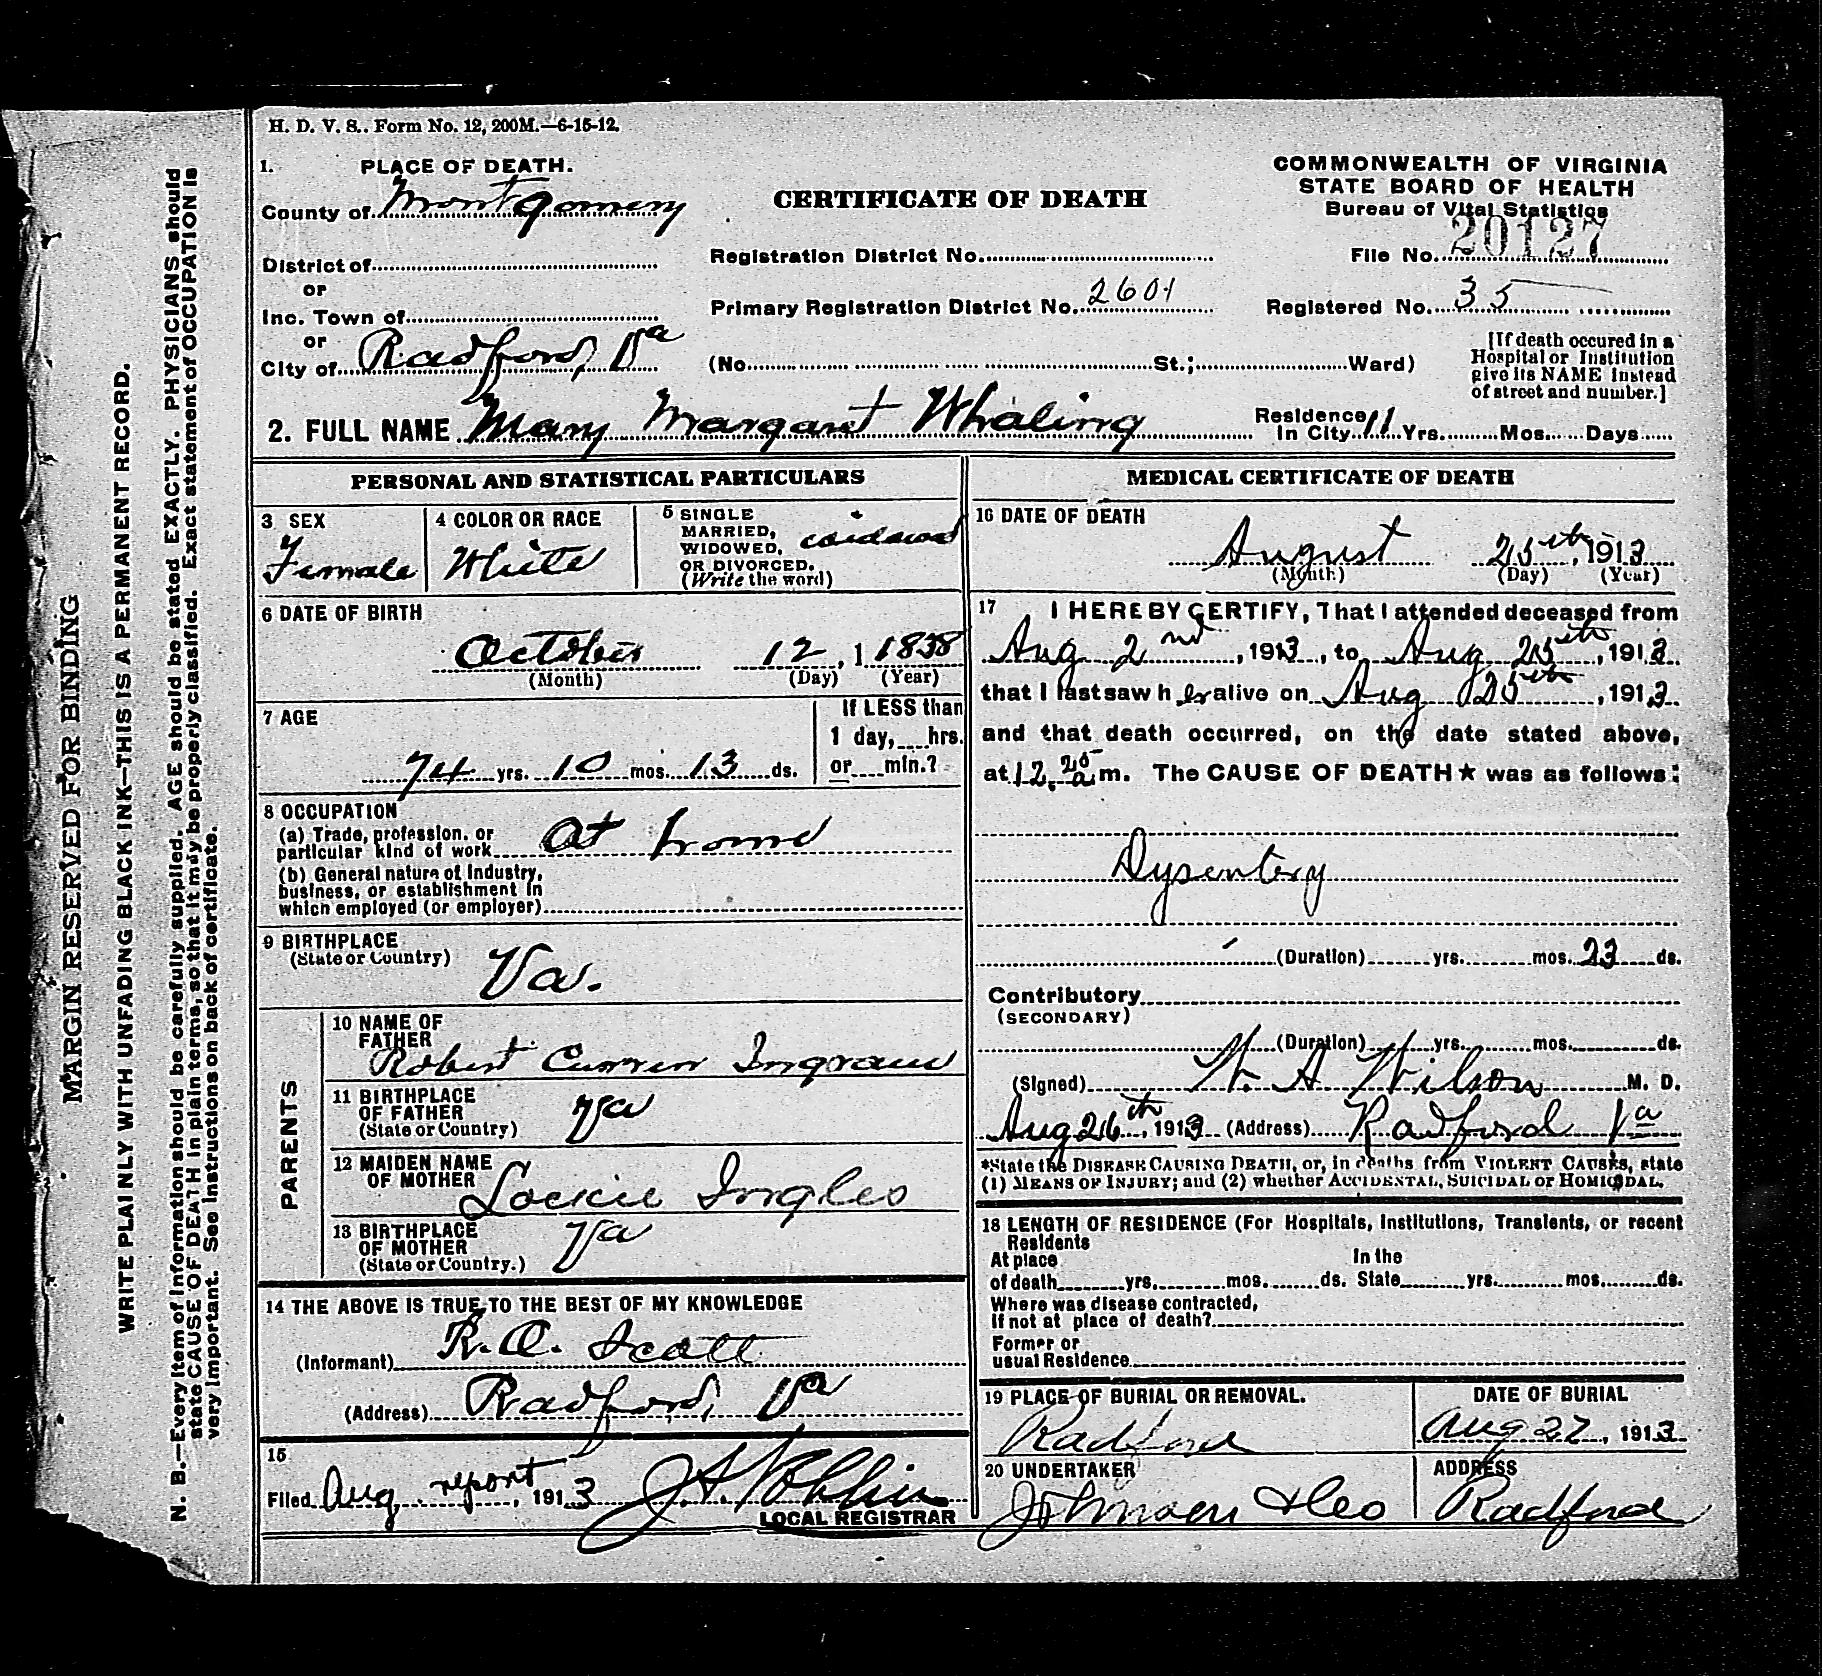 H. D. V. S.. Form No. 12, 200M.—6-15-12.
1. PLACE OF DEATH.
County of Montgomery
District of
or
Inc. Town of
or
City of Radford, Va
CERTIFICATE OF DEATH
Registration District No.
Primary Registration District No. 2601
(No. St.; Ward)
COMMONWEALTH OF VIRGINIA
STATE BOARD OF HEALTH
Bureau of Vital Statistics
File No. 20127
Registered No. 35
[If death occured in a
Hospital or Institution
give its NAME instead
of street and number.]
2. FULL NAME Mary Margaret Whaling
Residence In City 11 Yrs. Mos. Days
PERSONAL AND STATISTICAL PARTICULARS
3 SEX
Female
4 COLOR OR RACE
White
5 SINGLE
MARRIED,
WIDOWED,
OR DIVORCED.
(Write the word)
widowed
6 DATE OF BIRTH
October 12, 1 1838
(Month) (Day) (Year)
7 AGE
74 yrs. 10 mos. 13 ds.
If LESS than
1 day, hrs.
or min.?
8 OCCUPATION
(a) Trade, profession, or
particular kind of work At home
(b) General nature of Industry,
business, or establishment in
which employed (or employer)
9 BIRTHPLACE
(State or Country) Va.
PARENTS
10 NAME OF
FATHER
Robert Currin Ingram
11 BIRTHPLACE
OF FATHER
(State or Country) Va
12 MAIDEN NAME
OF MOTHER Lockie Ingles
13 BIRTHPLACE
OF MOTHER
(State or Country.) Va
14 THE ABOVE IS TRUE TO THE BEST OF MY KNOWLEDGE
(Informant) Scott
(Address) Radford, Va
15
Filed Aug report, 1913
LOCAL REGISTRAR
MEDICAL CERTIFICATE OF DEATH
16 DATE OF DEATH
August 25th, 1913
(Month) (Day) (Year)
17 I HEREBY CERTIFY, That I attended deceased from
Aug 2nd, 1913, to Aug 25th, 1913
that I last saw her alive on Aug 25th, 1913
and that death occurred, on the date stated above,
at 12.25 a m. The CAUSE OF DEATH★ was as follows:
Dysentery
(Duration) yrs. mos. 23 ds.
Contributory
(SECONDARY)
(Duration) yrs. mos. ds.
(Signed) W. A Wilson M. D.
Aug 26th, 1913 (Address) Radford Va
*State the DISEASE CAUSING DEATH, or, in deaths from VIOLENT CAUSES, state
(1) MEANS OF INJURY; and (2) whether ACCIDENTAL, SUICIDAL or HOMICIDAL.
18 LENGTH OF RESIDENCE (For Hospitals, Institutions, Transients, or recent
Residents
At place In the
of death yrs. mos. ds. State yrs. mos. ds.
Where was disease contracted,
If not at place of death?
Former or
usual Residence
19 PLACE OF BURIAL OR REMOVAL.
Radford
DATE OF BURIAL
Aug 27, 1913
20 UNDERTAKER
Johnson & Co
ADDRESS
Radford
MARGIN RESERVED FOR BINDING
WRITE PLAINLY WITH UNFADING BLACK INK—THIS IS A PERMANENT RECORD.
N. B.—Every item of information should be carefully supplied. AGE should be stated EXACTLY. PHYSICIANS should
state CAUSE OF DEATH in plain terms, so that it may be properly classified. Exact statement of OCCUPATION is
very important. See instructions on back of certificate.